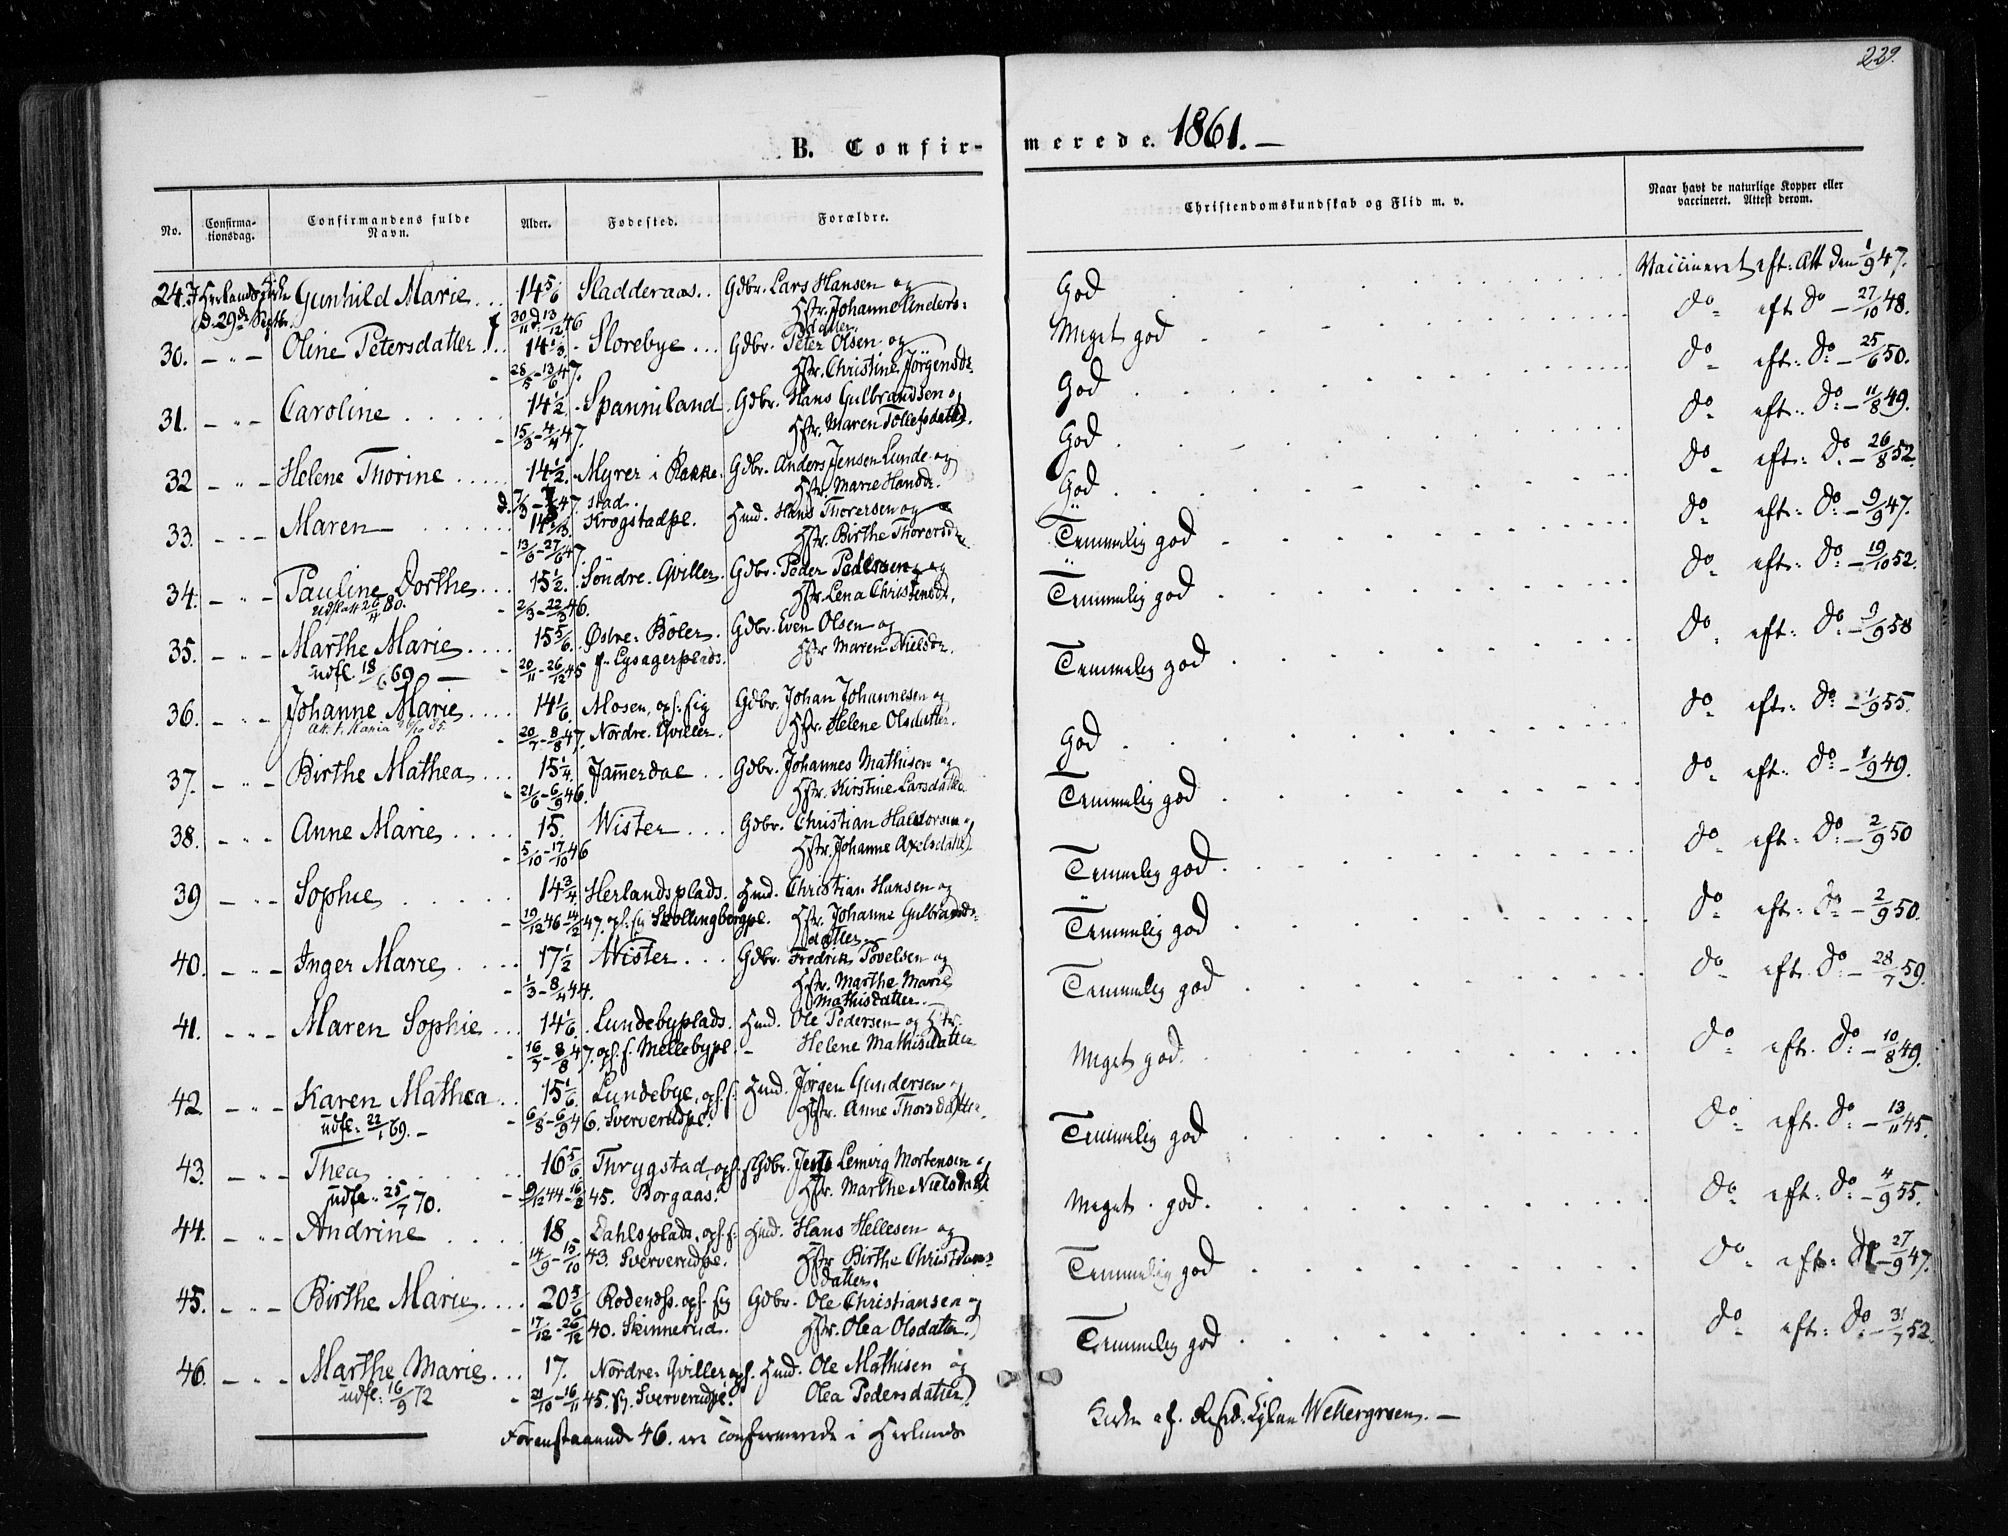 229.
B. Confirmerede. 1861. —
No. Confirmationsdag. Confirmandens fulde Navn. Alder. Fødested. Forældre. Christendomskundskab og Flid m. v. Naar havt de naturlige Kopper eller vaccineret. Attest derom.
24. I Herlands Kirke Gunhild Marie . . . 14 5/6 Sladderaas . . Gdbr. Lars Hansen og God Vaccineret eft: Att den 1/9 47.
d. 29de Septbr. 30/11 d. 13/12 46 Hstr. Johanne Anders: datter.
30. — " — Oline Petersdatter 14 1/3 Slorebye . . . Gdbr. Peter Olsen og Meget god do eft do — 27/10 48.
28/5 - 13/6 47. Hstr. Christine Jörgensdr.
31. — " — Caroline 14 1/2 Spanniland Gdbr. Hans Gulbrandsen og God do eft: do — 25/6 50.
15/3 - 4/4 47. Hstr. Maren Tollefsdatter.
32 — " — Helene Thorine 14 1/2. Myrer i Rakke- Gdbr. Anders Jensen Lunde og God do eft: do — 11/8 49.
stad. Hstr. Marie Hansdr.
33. — " — Maren — Krogstadpl. Hmd. Hans Thorersen og God do eft: do — 26/8 52.
13/6 - 27/6 47 Hstr. Birthe Thorersdr.
34. — " — Pauline Dorthe . . . 15 1/2. Söndre. Qviller. Gdbr. Peder Pedersen og Temmelig god do eft: do — 9/9 47.
udfl att 26/4 80. 2/3 - 22/3 46. Hstr. Lena Christensdr.
35. — " — Marthe Marie . . . . 15 5/6. Østre. Böler. Gdbr. Even Olsen og Temmelig god do eft: do — 19/10 52.
udfl 18/6 69. — 20/11 - 26/12 45 Lysagerplads. Hstr Maren Nielsdr.
36. — " — Johanne Marie . . . . 14 1/6. Mosen, opf: sig Gdbr. Johan Johannesen og Temmelig god do eft: do — 9/9 58
20/7 - 8/8 47. Nordre. Qviller. Hstr. Helene Olsdatter.
37. — " — Birthe Mathea . . . 15 1/4. Jammerdal . . Gdbr. Johannes Mathisen og God do eft: do — 1/9 55.
21/6 - 6/9 46. Hstr. Kirstine Larsdatter
38. — " — Anne Marie . . . . 15. Wister . . . Gdbr. Christian Halvorsen og Temmelig god do eft: do — 1/9 49.
5/10 - 17/10 46 Hstr. Johanne Axelsdatter
39 — " — Sophie 14 3/4 Herlandsplads. Hmd. Christian Hansen og Temmelig god do eft: do — 2/9 50
19/12 46 - 14/2 47. opf: sig Skollingbergpl. Hstr. Johanne Gulbrands-
datter.
40. — " — Inger Marie 17 1/2 Wister . . . Gdbr. Fredrik Povelsen og Temmelig god do eft: do — 2/9 50.
1/3 - 8/4 44. Hstr. Marthe Marie
Mathisdatter. —
41. — " — Maren Sophie . . . 14 1/6. Lundebyplads. Hmd. Ole Pedersen og Hstr. Temmelig god do eft. do — 28/7 59.
16/7 - 8/8 47. opf. f. Mellebypl. — Helene Mathisdatter
42 — " — Karen Mathea . . 15 1/6. Lundebye, opf. f: Hmd. Jörgen Gundersen og Meget god. do eft. do — 10/8 49.
udfl: 22/1 69. — 6/8 - 6/9 46. Sververudpl. Hstr. Anne Thorsdatter.
43. — " — Thea 16 5/6 Thrygstad opf. f Gdbr. Jens Lemvig Mortensen og Temmelig god do eft. do — 13/11 45.
udfl. 25/7 70. 9/12 44 - 16/2 45. Borgaas. Hstr. Marthe Nielsdatter
44. — " — Andrine 18. Dahlsplads, opf. f: Hmd. Hans Hellesen og Meget god. do eft: do — 4/9 55.
14/9 - 15/10 43. Sververudpl. Hstr Birthe Christians-
datter.
45. — " — Birthe Marie . . . . 20 5/6 Rödends. opf. sig Gdbr. Ole Christiansen og Temmelig god do eft: do — 27/9 47.
17/12 - 26/12 40. Skinnerud. Hstr. Olea Olsdatter.
46. — " — Marthe Marie . . . 17. Nordre. Qviller opf. Hmd. Ole Mathisen og Temmelig god do eft: do — 31/7 52.
udfl: 16/9 72 21/10 - 16/11 45. Sververudpl. Olea Pedersdatter
Foranstaaende 46. ere confirmerede i Herlands Kirke af. Resid. Cplan Wettergreen. —